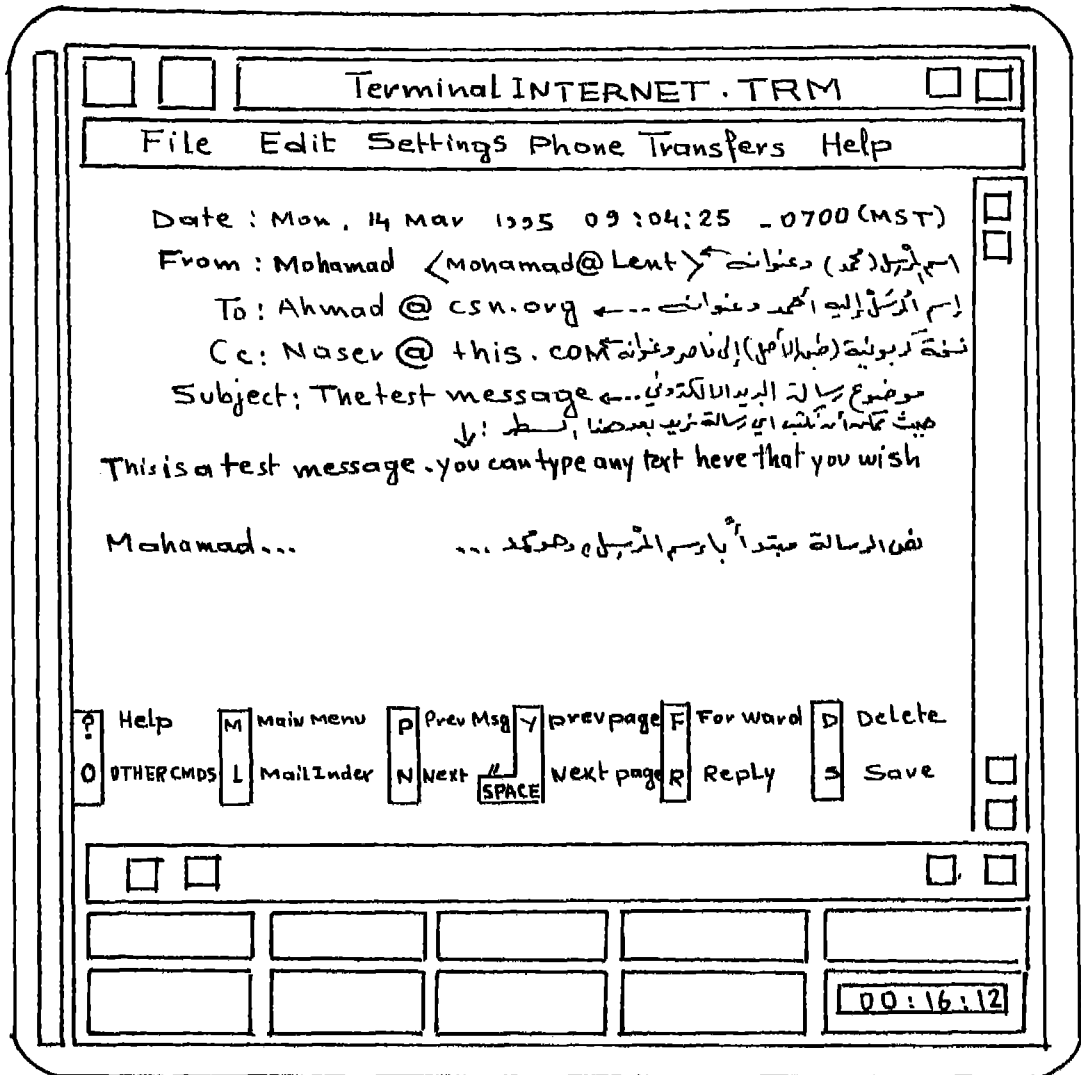 Terminal INTERNET.TRM
File Edit Settings Phone Transfers Help
Date : Mon, 14 Mar 1995 09:04:25 -0700 (MST)
From : Mohamad <Mohamad@Lent> ← اسم المُرسِل (محمد) وعنوانه
To : Ahmad @ csn.org ←... إسم المُرسَلْ إليه أحمد وعنوانه
Cc : Naser @ this.com نسخة كربونية (طبق الأصل) إلى ناصر وعنوانه
Subject : The test message ←... موضوع رسالة البريد الالكتروني
حيث أي رسالة تريد بعد هذا السطر : ↓
This is a test message. you can type any text here that you wish
Mohamad... نص الرسالة مبتدأً بإسم المُرسِل، وهو محمد ...
? Help M Main Menu P Prev Msg Y prev page F Forward D Delete
O OTHER CMDS L Mail Inder N Next " SPACE Next page R Reply S Save
00:16:12